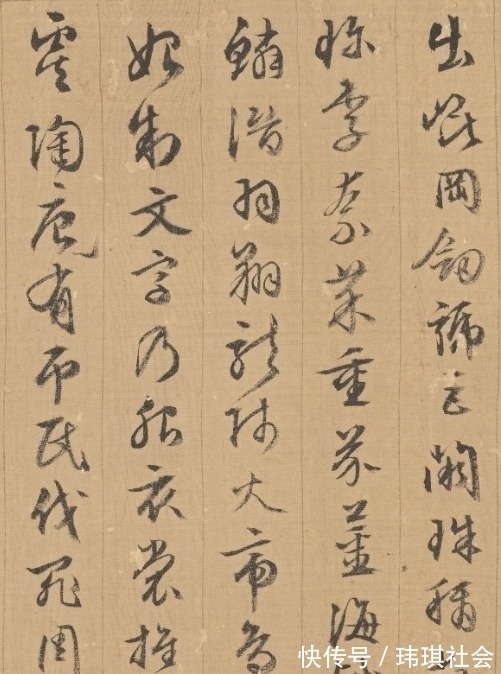 出崑岡劍號巨闕珠稱
珍李奈菜重芥薑海
鱗潛羽翔龍師火帝鳥
始制文字乃服衣裳推
虞陶唐有吊民伐罪周
快传号 / 玮琪社会